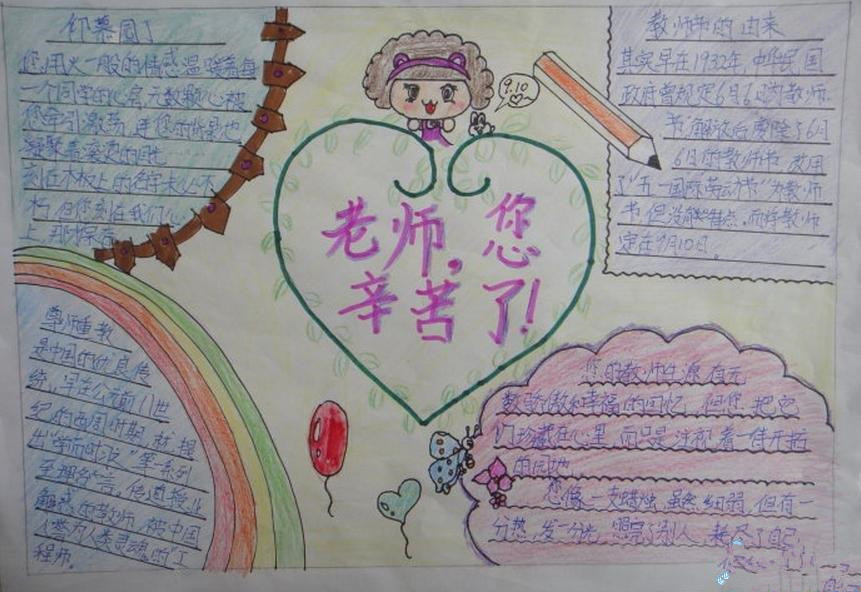 仰慕园丁
您用火一般的情感温暖着每
一个同学的心房,无数颗心被
您牵引激荡,连您的背影也
凝聚着滚烫的目光……
刻在木板上的名字未必不
朽,但您刻在我们心
上,那才保存
教师节的由来
其实早在1932年,中华民国
政府曾规定6月6日为教师
节,解放后废除了6月
6日的教师节,改用
了“五一国际劳动节”为教师
节,但没有特点。而将教师
定在9月10日。
9.10
老师,您
辛苦了!
尊师重教
是中国的优良传
统,早在公元前11世
纪的西周时期,就提
出
等一系列
至理名言。传道授业
解惑的教师,被中国
人誉为人类灵魂的“工
程师。
您的教师生涯,有无
数骄傲和幸福的回忆,但您把它
们珍藏在心里,而只是注视着一件开拓
的园地。
您像一支蜡烛,虽然细弱,但有一
分热,发一分光,照亮了别人,耗尽了自己,